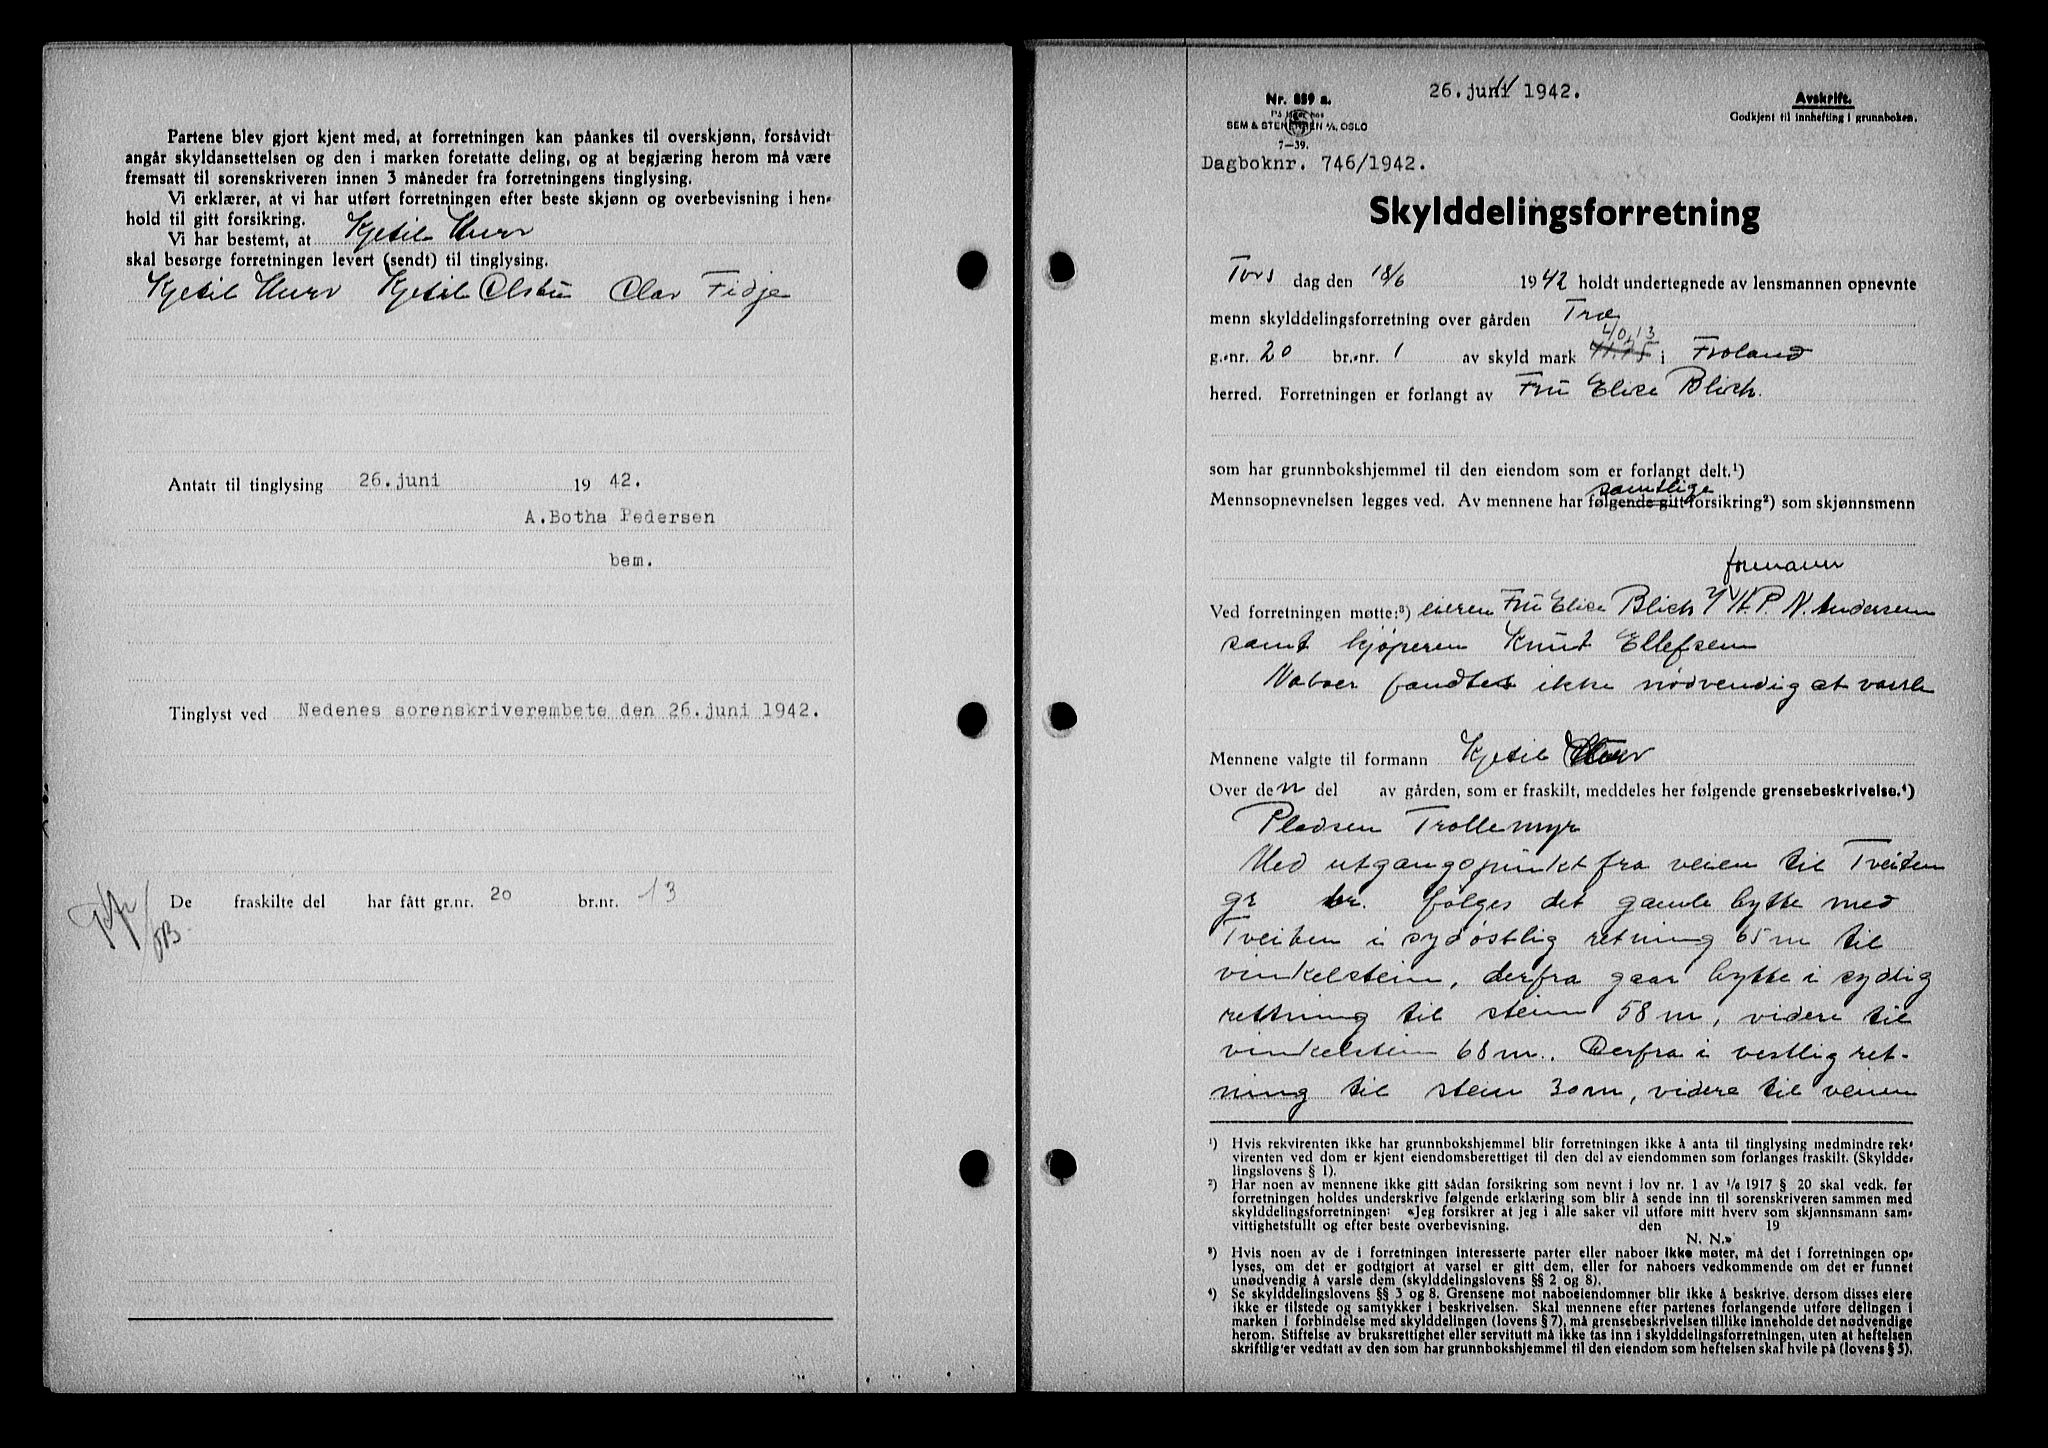 Partene blev gjort kjent med, at forretningen kan påankes til overskjønn, forsåvidt
angår skyldansettelsen og den i marken foretatte deling, og at begjæring herom må være
fremsatt til sorenskriveren innen 3 måneder fra forretningens tinglysing.
Vi erklærer, at vi har utført forretningen efter beste skjønn og overbevisning i hen-
hold til gitt forsikring.
Vi har bestemt, at Kjetil
skal besørge forretningen levert (sendt) til tinglysing.
Kjetil Kjetil Olstu Olav Fidje
Antatt til tinglysing 26.juni 19 42.
A.Botha Pedersen
bem.
Tinglyst ved Nedenes sorenskriverembete den 26.juni 1942.
De fraskilte del har fått gr.nr. 20 br.nr. 13
26.juni 1942.
Nr. 889 a.
På lager hos
SEM & STENERSEN A/S, OSLO
7—39.
Avskrift.
Godkjent til innhefting i grunnboken.
Dagboknr. 746/1942.
Skylddelingsforretning
Tors dag den 18/6 1942 holdt undertegnede av lensmannen opnevnte
menn skylddelingsforretning over gården Træ
40,13
g.-nr. 20 br.-nr. 1 av skyld mark 41.75 i Froland
herred. Forretningen er forlangt av Fru Elise Blich.
som har grunnbokshjemmel til den eiendom som er forlangt delt.¹)
samtlige
Mennsopnevnelsen legges ved. Av mennene har følgende gitt forsikring²) som skjønnsmenn
formann
Ved forretningen møtte:³) eieren Fru Elise Blich P. N. Andersen
samt kjøperen Knut Ellefsen
Naboer fandtes ikke nødvendig at varsle
Mennene valgte til formann Kjetil
Over den del av gården, som er fraskilt, meddeles her følgende grensebeskrivelse.⁴)
Pladsen Trollemyr
Med utgangspunkt fra veien til Tveiten
gr br. følges det gamle bytte med
Tveiten i sydøstlig retning 65 m til
vinkelstein, derfra gaar bytte i sydlig
rettning til stein 58 m, videre til
vinkelstein 68 m. Derfra i vestlig ret-
ning til stein 30 m, videre til veien
¹) Hvis rekvirenten ikke har grunnbokshjemmel blir forretningen ikke å anta til tinglysing medmindre rek-
virenten ved dom er kjent eiendomsberettiget til den del av eiendommen som forlanges fraskilt. (Skyldde-
lingslovens § 1).
²) Har noen av mennene ikke gitt sådan forsikring som nevnt i lov nr. 1 av 1/6 1917 § 20 skal vedk. før
forretningen holdes underskrive følgende erklæring som blir å sende inn til sorenskriveren sammen med
skylddelingsforretningen: «Jeg forsikrer at jeg i alle saker vil utføre mitt hverv som skjønnsmann sam-
vittighetsfullt og efter beste overbevisning. den 19
N. N.»
³) Hvis noen av de i forretningen interesserte parter eller naboer ikke møter, må det i forretningen op-
lyses, om det er godtgjort at varsel er gitt dem, eller for naboers vedkommende om det er funnet
unødvendig å varsle dem (skylddelingslovens §§ 2 og 8).
⁴) Se skylddelingslovens §§ 3 og 8. Grensene mot naboeiendommer blir ikke å beskrive, dersom disses eiere
ikke er tilstede og samtykker i beskrivelsen. Skal mennene efter partenes forlangende utføre delingen i
marken i forbindelse med skylddelingen (lovens § 7), må grensebeskrivelsen tillike inneholde det nødvendige
herom. Stiftelse av bruksrettighet eller servitutt må ikke tas inn i skylddelingsforretningen, uten at heftelsen
skriftlig er vedtatt av den som har grunnbokshjemmel til den eiendom som heftelsen skal hvile på (lovens § 5).